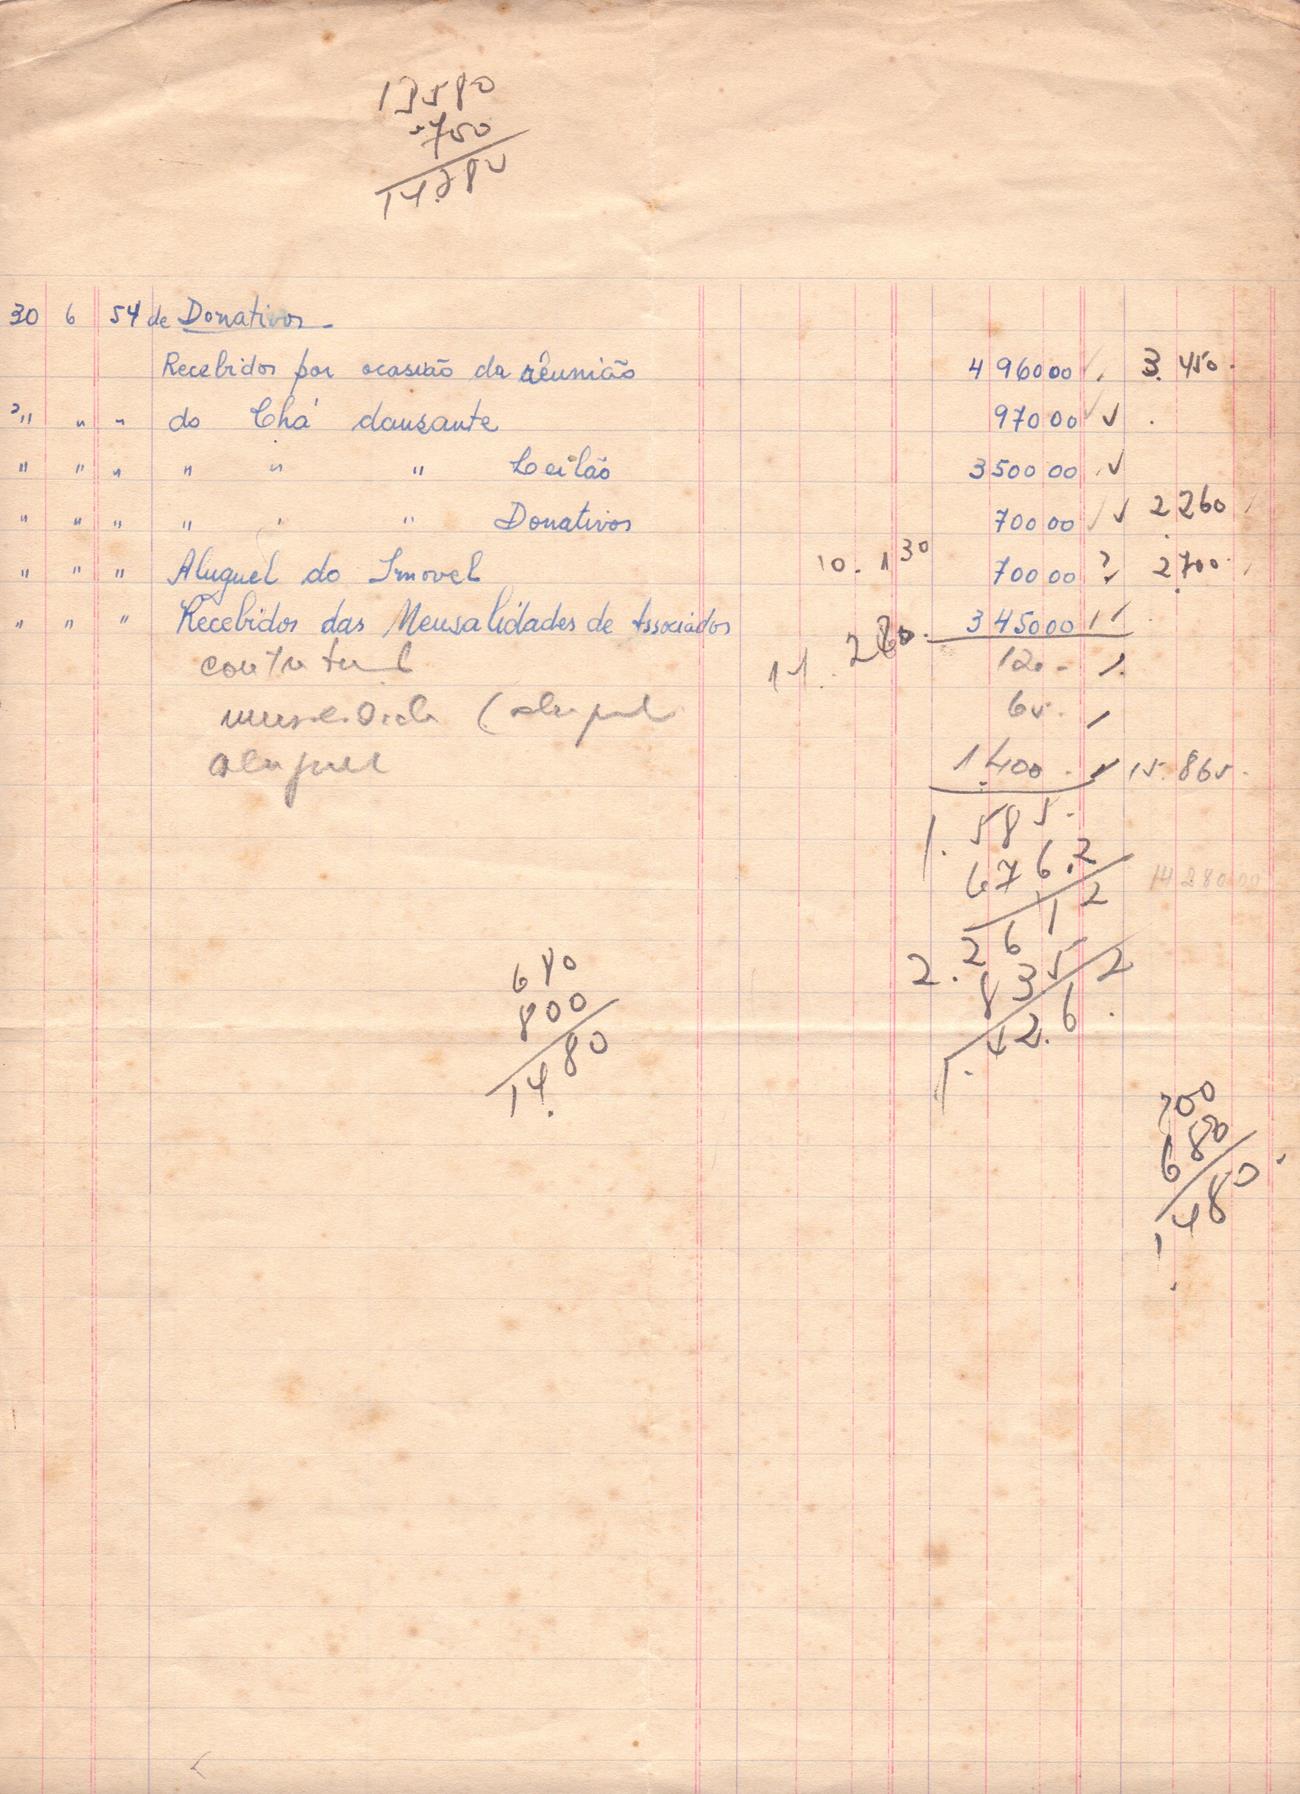 13580
700
14.280
30 6 54 de Donativos
Recebidos por ocasião da rêunião 4 960 00 3.450.
" " " do Chá dansante 970 00
" " " " " " Leilão 3 500 00
" " " " " " Donativos 700 00 2 260
" " " Aluguel do Imovel 10.130 700 00 ? 2.700
" " " Recebidos das Mensalidades de Associados 3 450 00
14.280. 120 -
65.
aluguel 1.400. 15.865.
1.585.
676.2
14 280.00
2.261 2
835 2
1.426.
680
800
1480
800
680
1480